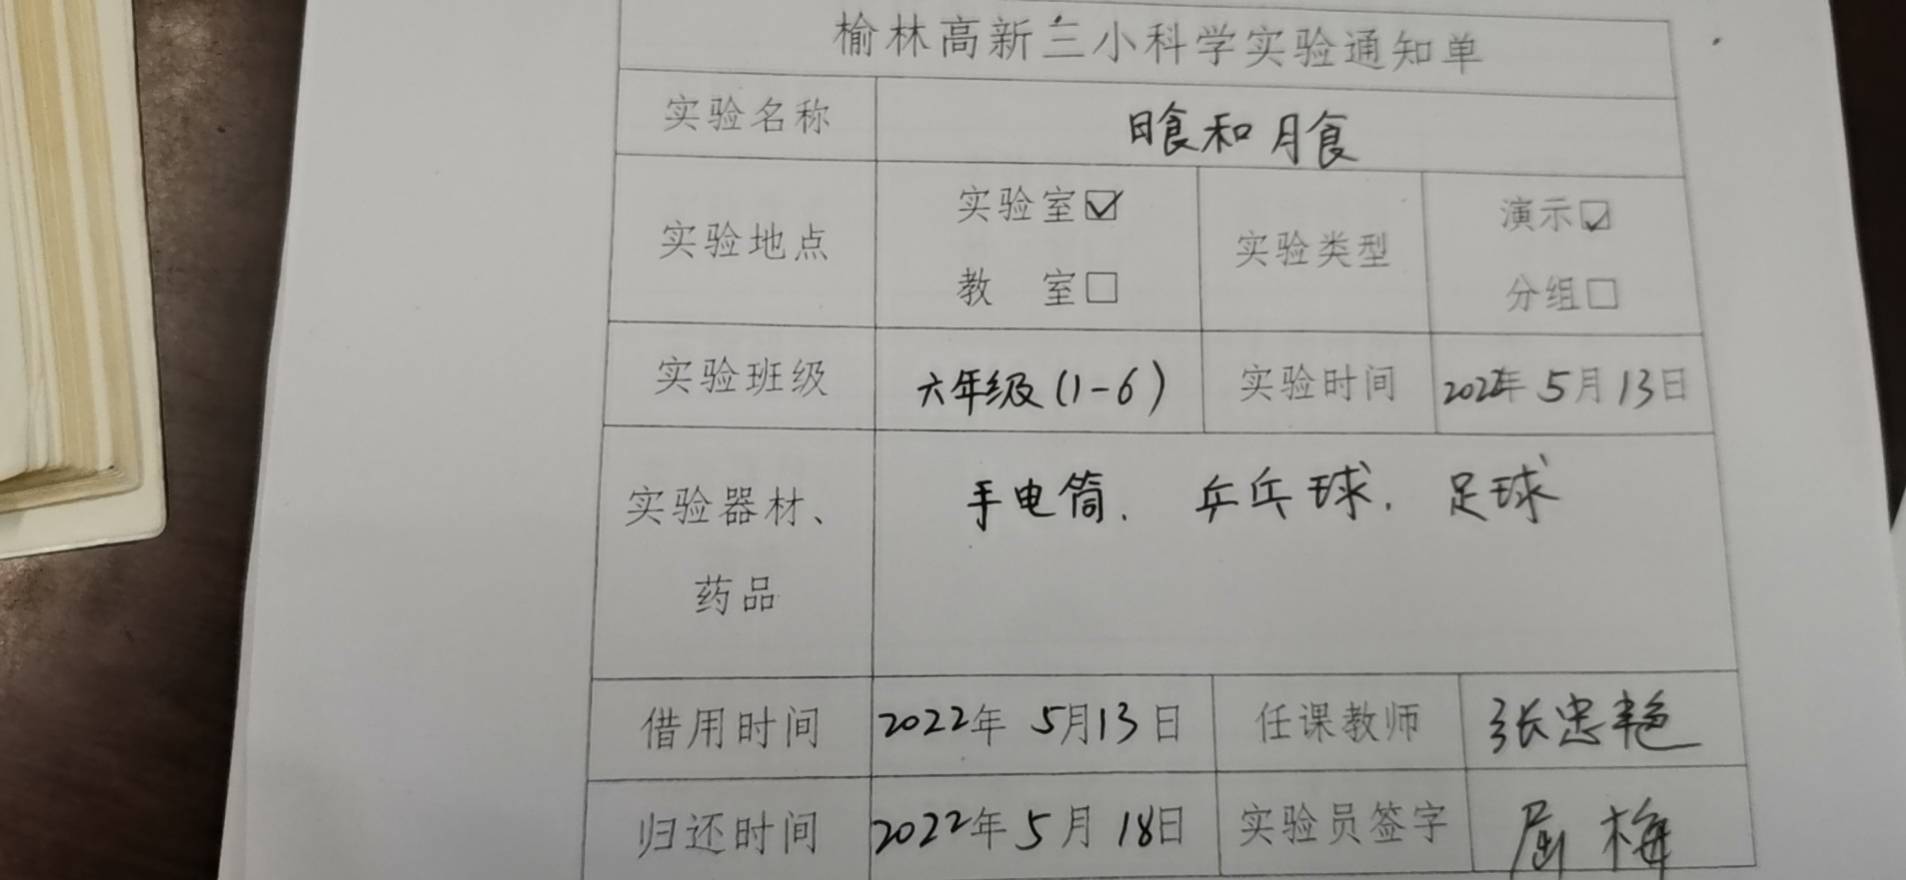 榆林高新三小科学实验通知单
实验名称 日食和月食
实验地点 实验室☑ 教 室□ 实验类型 演示☑ 分组□
实验班级 六年级(1-6) 实验时间 2022年5月13日
实验器材、药品 手电筒、乒乓球、足球
借用时间 2022年5月13日 任课教师 张忠艳
归还时间 2022年5月18日 实验员签字 屈梅